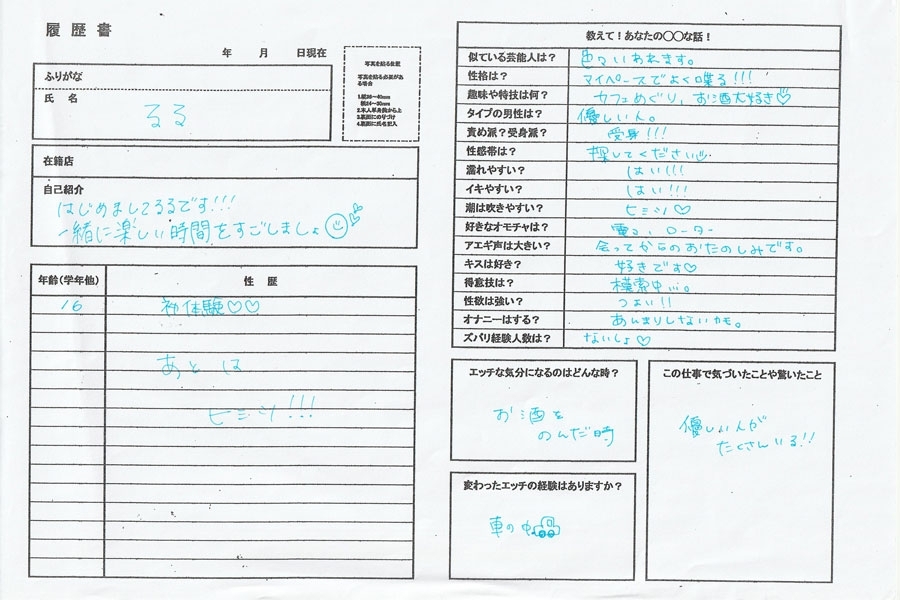 履歴書
年 月 日現在
写真を貼る位置
ふりがな
氏 名
るる
在籍店
自己紹介
はじめましてるるです!!!
一緒に楽しい時間をすごしましょ
年齢(学年他) 性 歴
16 初体験♡♡
あとは
ヒミツ!!!
教えて！あなたの〇〇な話！
似ている芸能人は？ 色々いわれます。
性格は？ マイペースでよく喋る!!!
趣味や特技は何？ カフェめぐり、お酒大好き♡
タイプの男性は？ 優しい人。
責め派？受身派？ 受身!!!
性感帯は？ 探してください
濡れやすい？ はい!!!
イキやすい？ はい!!!
潮は吹きやすい？ ヒミツ♡
好きなオモチャは？ 電マ、ローター
アエギ声は大きい？ 会ってからのおたのしみです。
キスは好き？ 好きです♡
得意技は？ 模索中...。
性欲は強い？ つよい!!
オナニーはする？ あんまりしないカモ。
ズバリ経験人数は？ ないしょ♡
エッチな気分になるのはどんな時？
お酒を
のんだ時
変わったエッチの経験はありますか？
車の中
この仕事で気づいたことや驚いたこと
優しい人が
たくさんいる!!